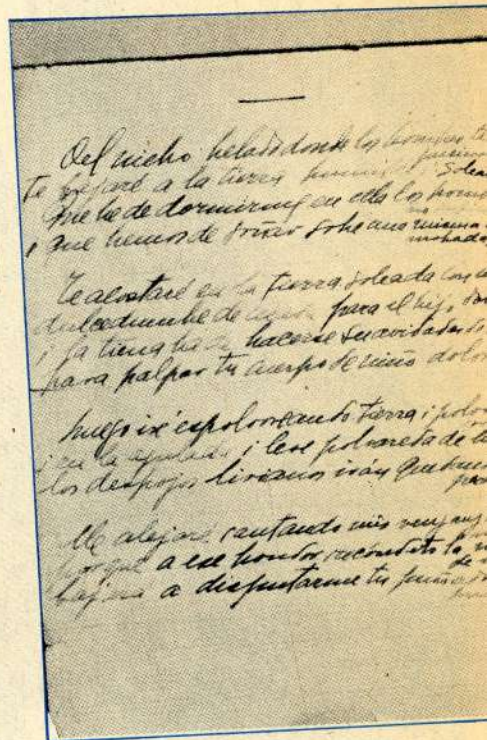 Del nicho helado donde los hombres te pusieron
te bajaré a la tierra humilde i soleada
que he de dormirme en ella los hombres no
i que hemos de soñar sobre una misma almohada

Te acostaré en la tierra soleada con
dulcedumbre de madre para el hijo
i la tierra ha de hacerse suavidades de
para palpar tu cuerpo de niño

Luego iré espolvoreando tierra i polvo
i en la azulada i leve polvareda de
los despojos livianos irán quedando

Me alejaré cantando mis venganzas
porque a ese hondor recóndito la
bajará a disputarme tu puñado de